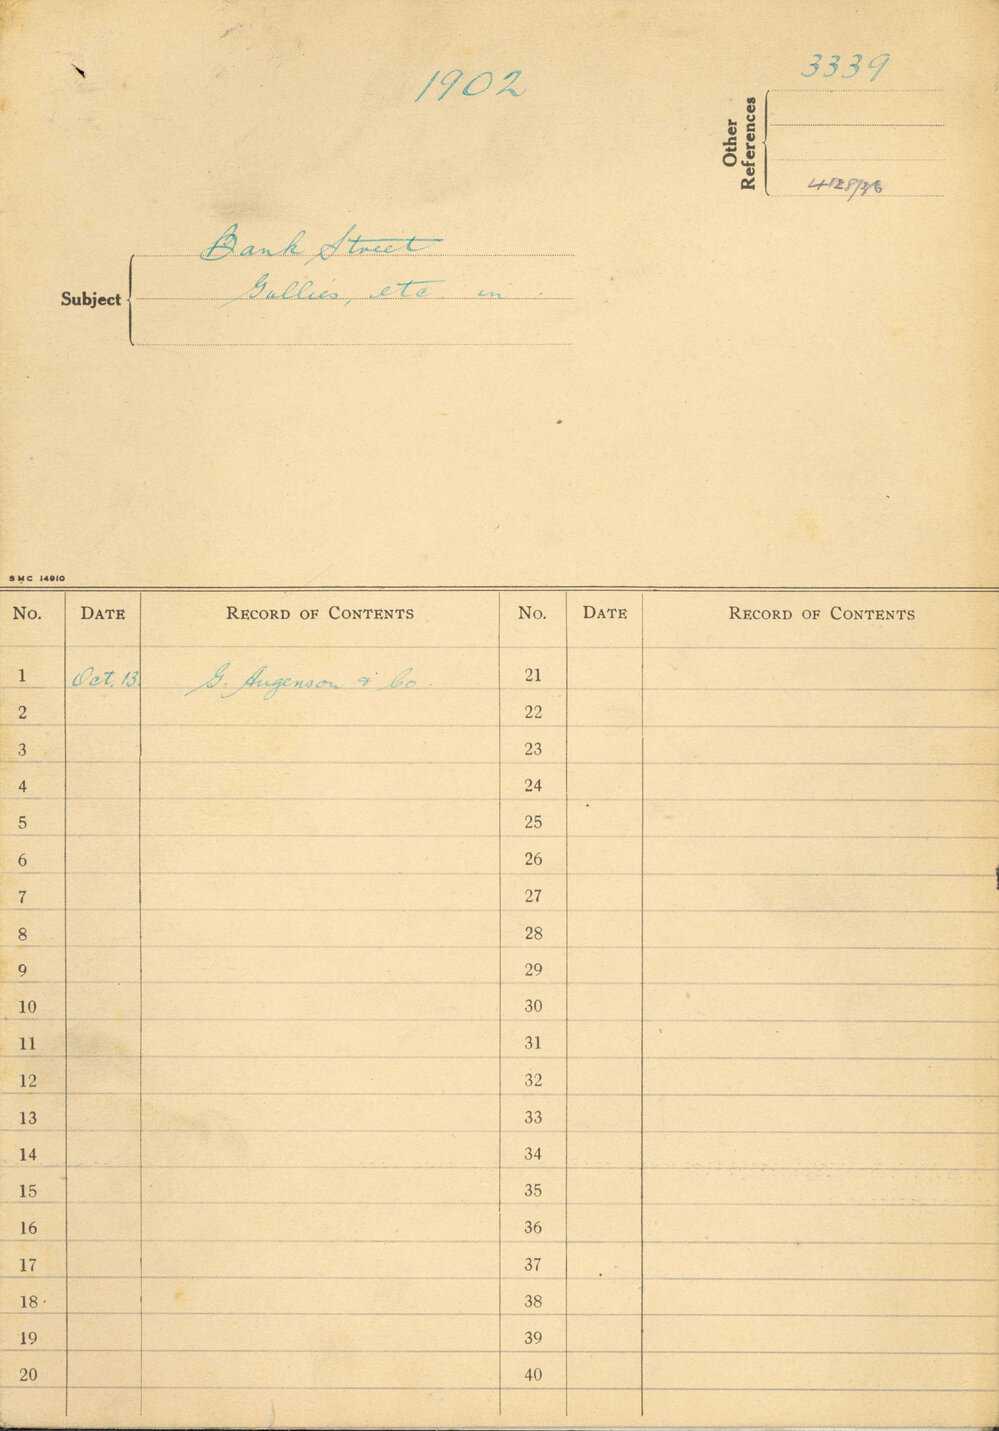 1902
3339
Other
References
4128/26
Bank Street
Gullies, etc in
Subject
SMC 14910
No. DATE RECORD OF CONTENTS No. DATE RECORD OF CONTENTS
1 Oct. 13. G. Augenson & Co. 21
2 22
3 23
4 24
5 25
6 26
7 27
8 28
9 29
10 30
11 31
12 32
13 33
14 34
15 35
16 36
17 37
18 38
19 39
20 40